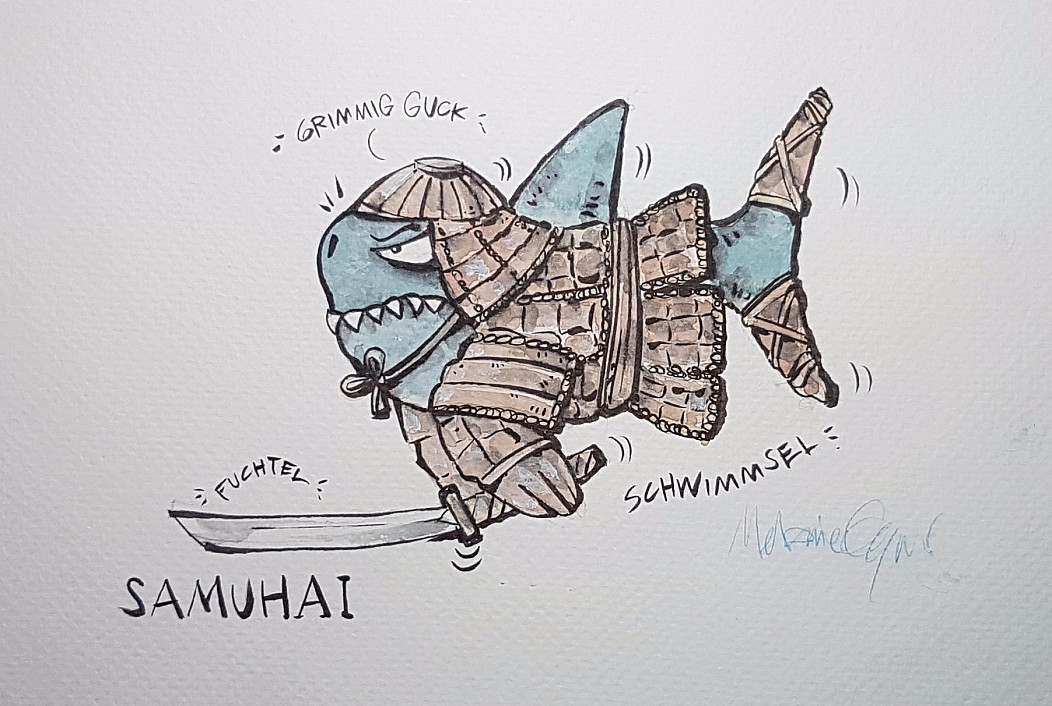 GRIMMIG GUCK
FUCHTEL
SCHWIMMSEL
SAMUHAI